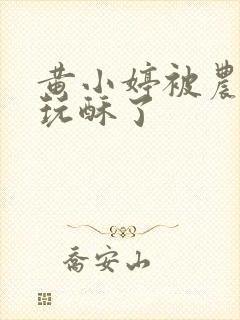 黄小婷被農
玩酥了
喬安山